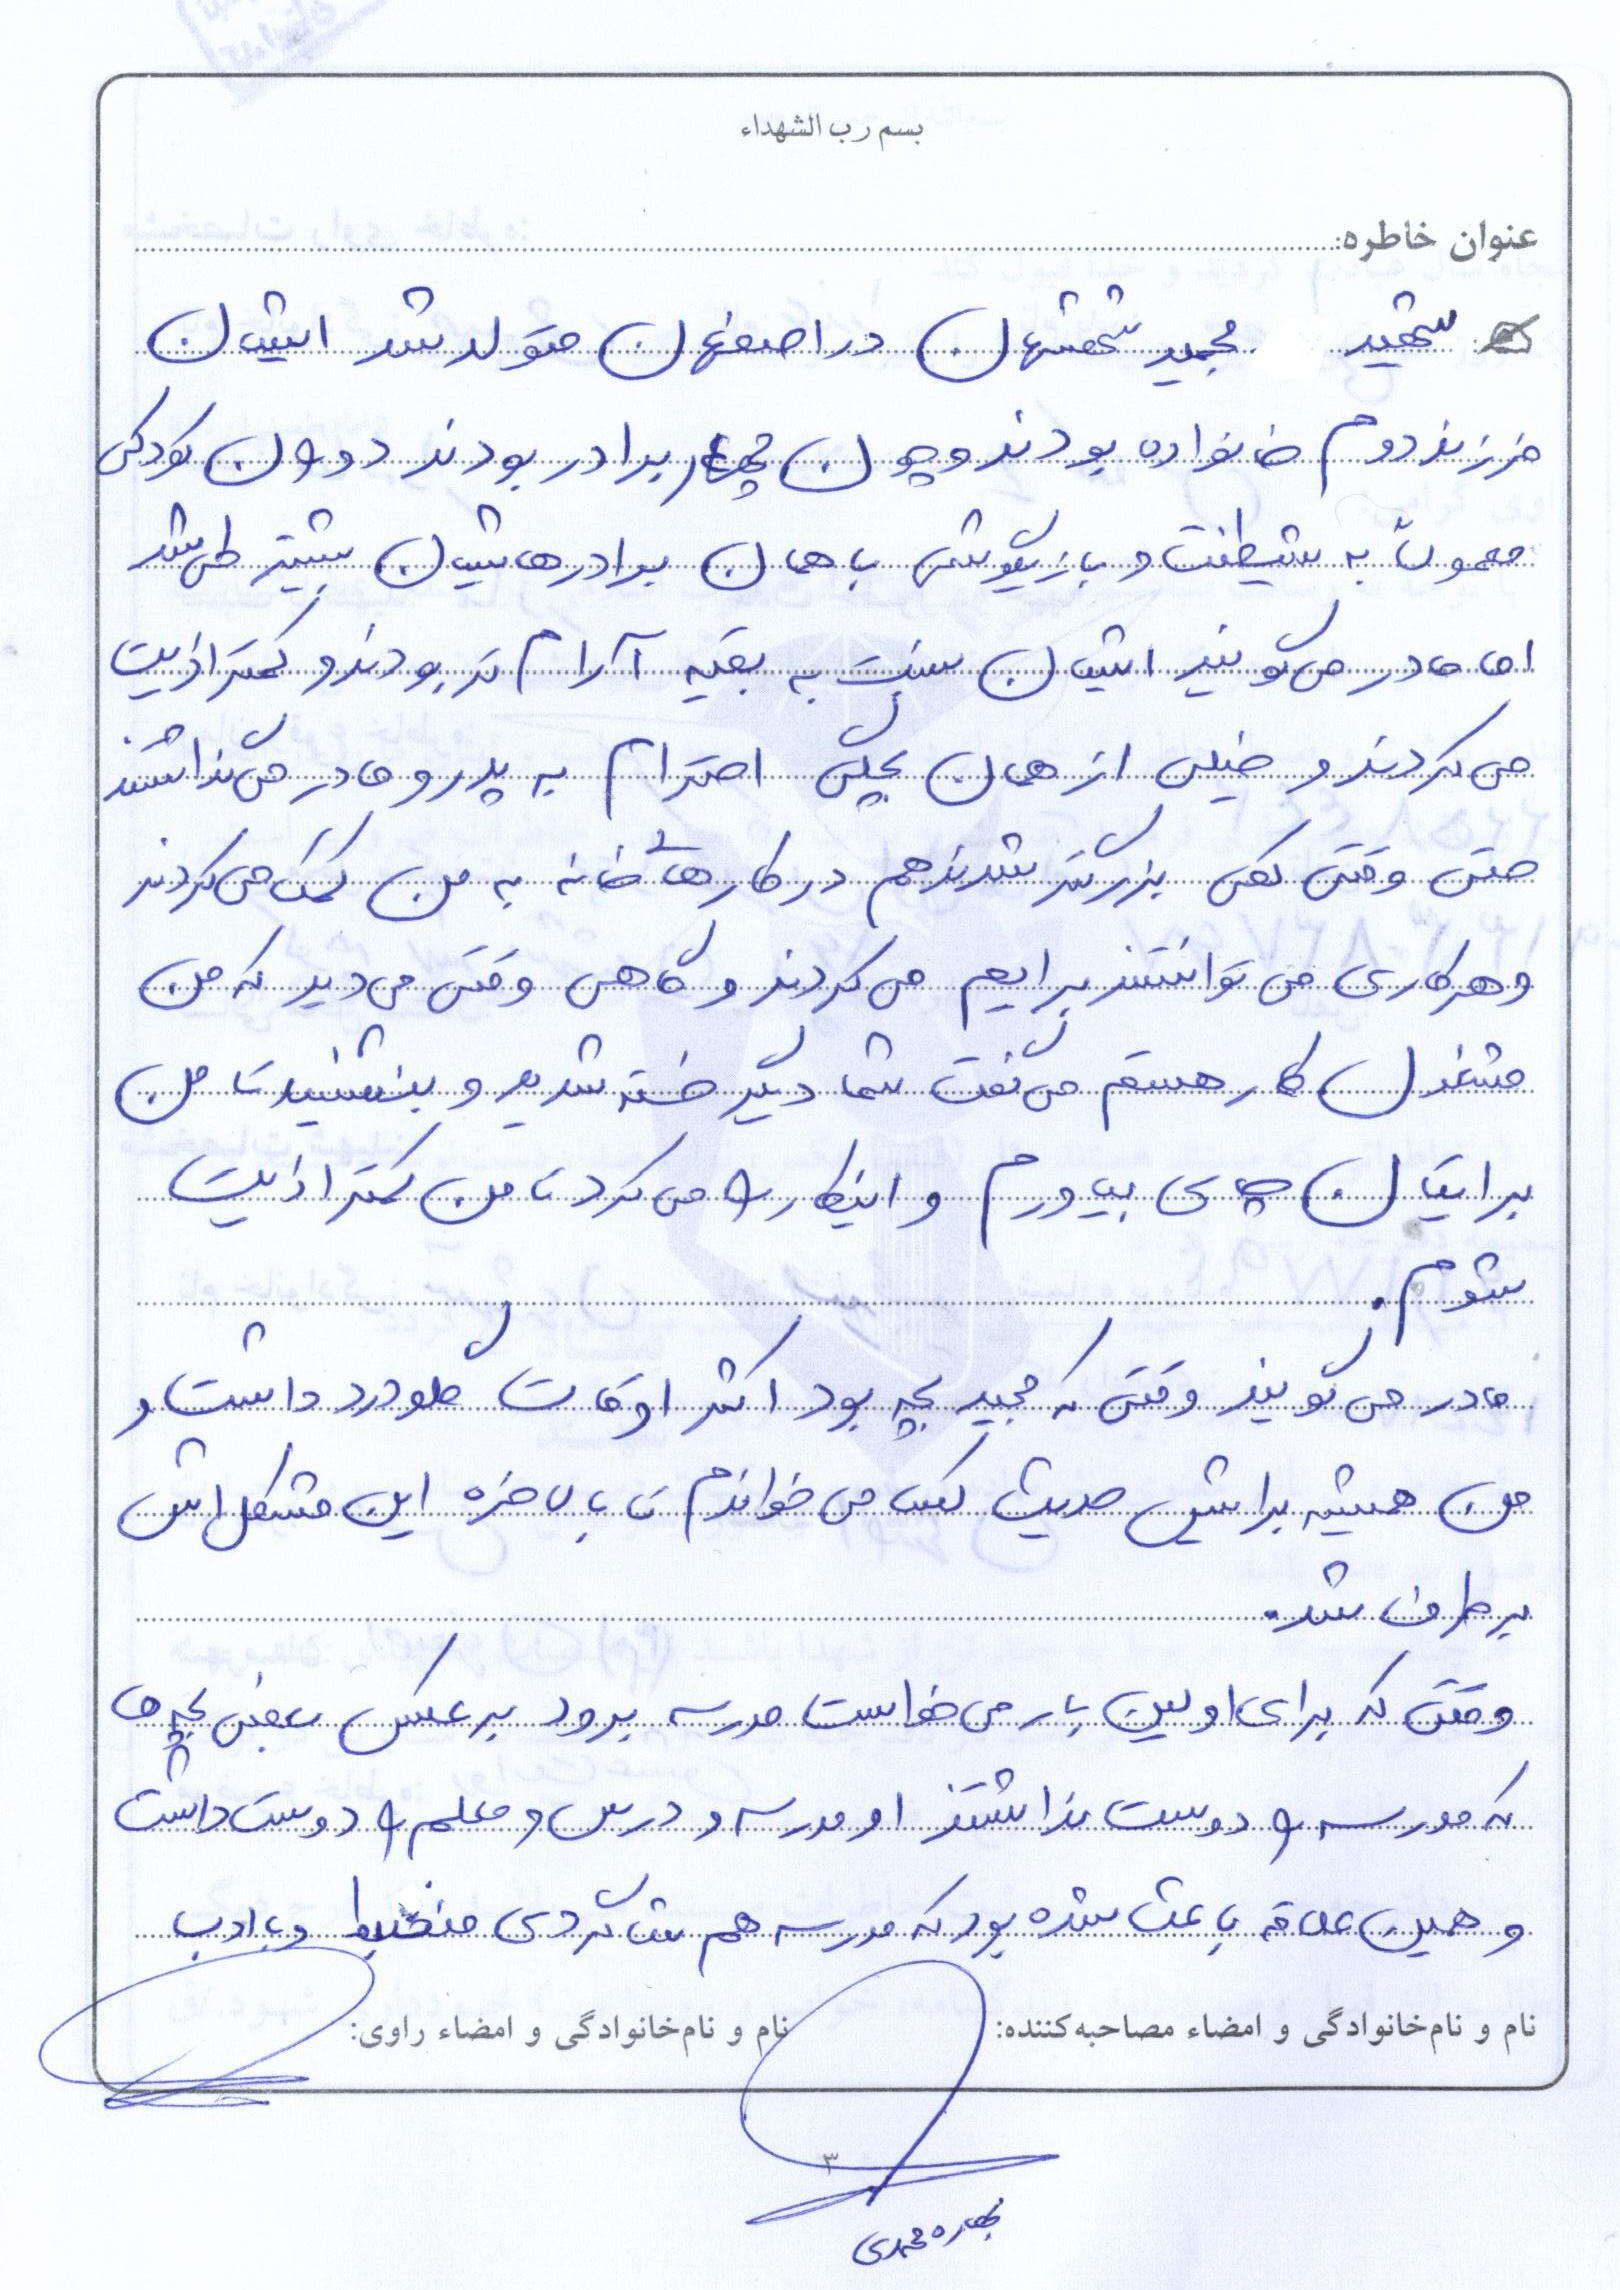 بسم رب الشهداء
عنوان خاطره:
شهید مجید شمشهان در اصفهان متولد شد ایشان
فرزند دوم خانواده بودند و چون چهار برادر بودند دوران کودکی
معمولاً به شیطنت و بازیگوشی با همان برادرهایشان بیشتر طی شد
اما مادر می‌گویند ایشان نسبت به بقیه آرام تر بودند و کمتر اذیت
می کردند و خیلی از همان بچگی احترام به پدر و مادر می‌گذاشتند
حتی وقتی کمی بزرگتر شدند هم در کارهای خانه به من کمک می کردند
و هر کاری می توانستند برایم می کردند و گاهی وقتی می دید که من
مشغول کار هستم می گفت شما دیگر خسته شدید و بنشینید تا من
برایتان چای بیاورم و اینکار را می کرد تا من کمتر اذیت
شوم.
مادر می گویند وقتی که مجید بچه بود اکثر اوقات گلودرد داشت و
من همیشه برایش حدیث کسا می خواندم تا بالاخره این مشکل اش
برطرف شد.
وقتی که برای اولین بار می خواست مدرسه برود برعکس بعضی بچه ها
که مدرسه را دوست نداشتند او مدرسه و درس و معلم را دوست داشت
و همین علاقه باعث شده بود که مدرسه هم شاگردی منضبط و با ادب
نام و نام‌خانوادگی و امضاء مصاحبه‌کننده: نام و نام‌خانوادگی و امضاء راوی:
۳
بهاره محمدی